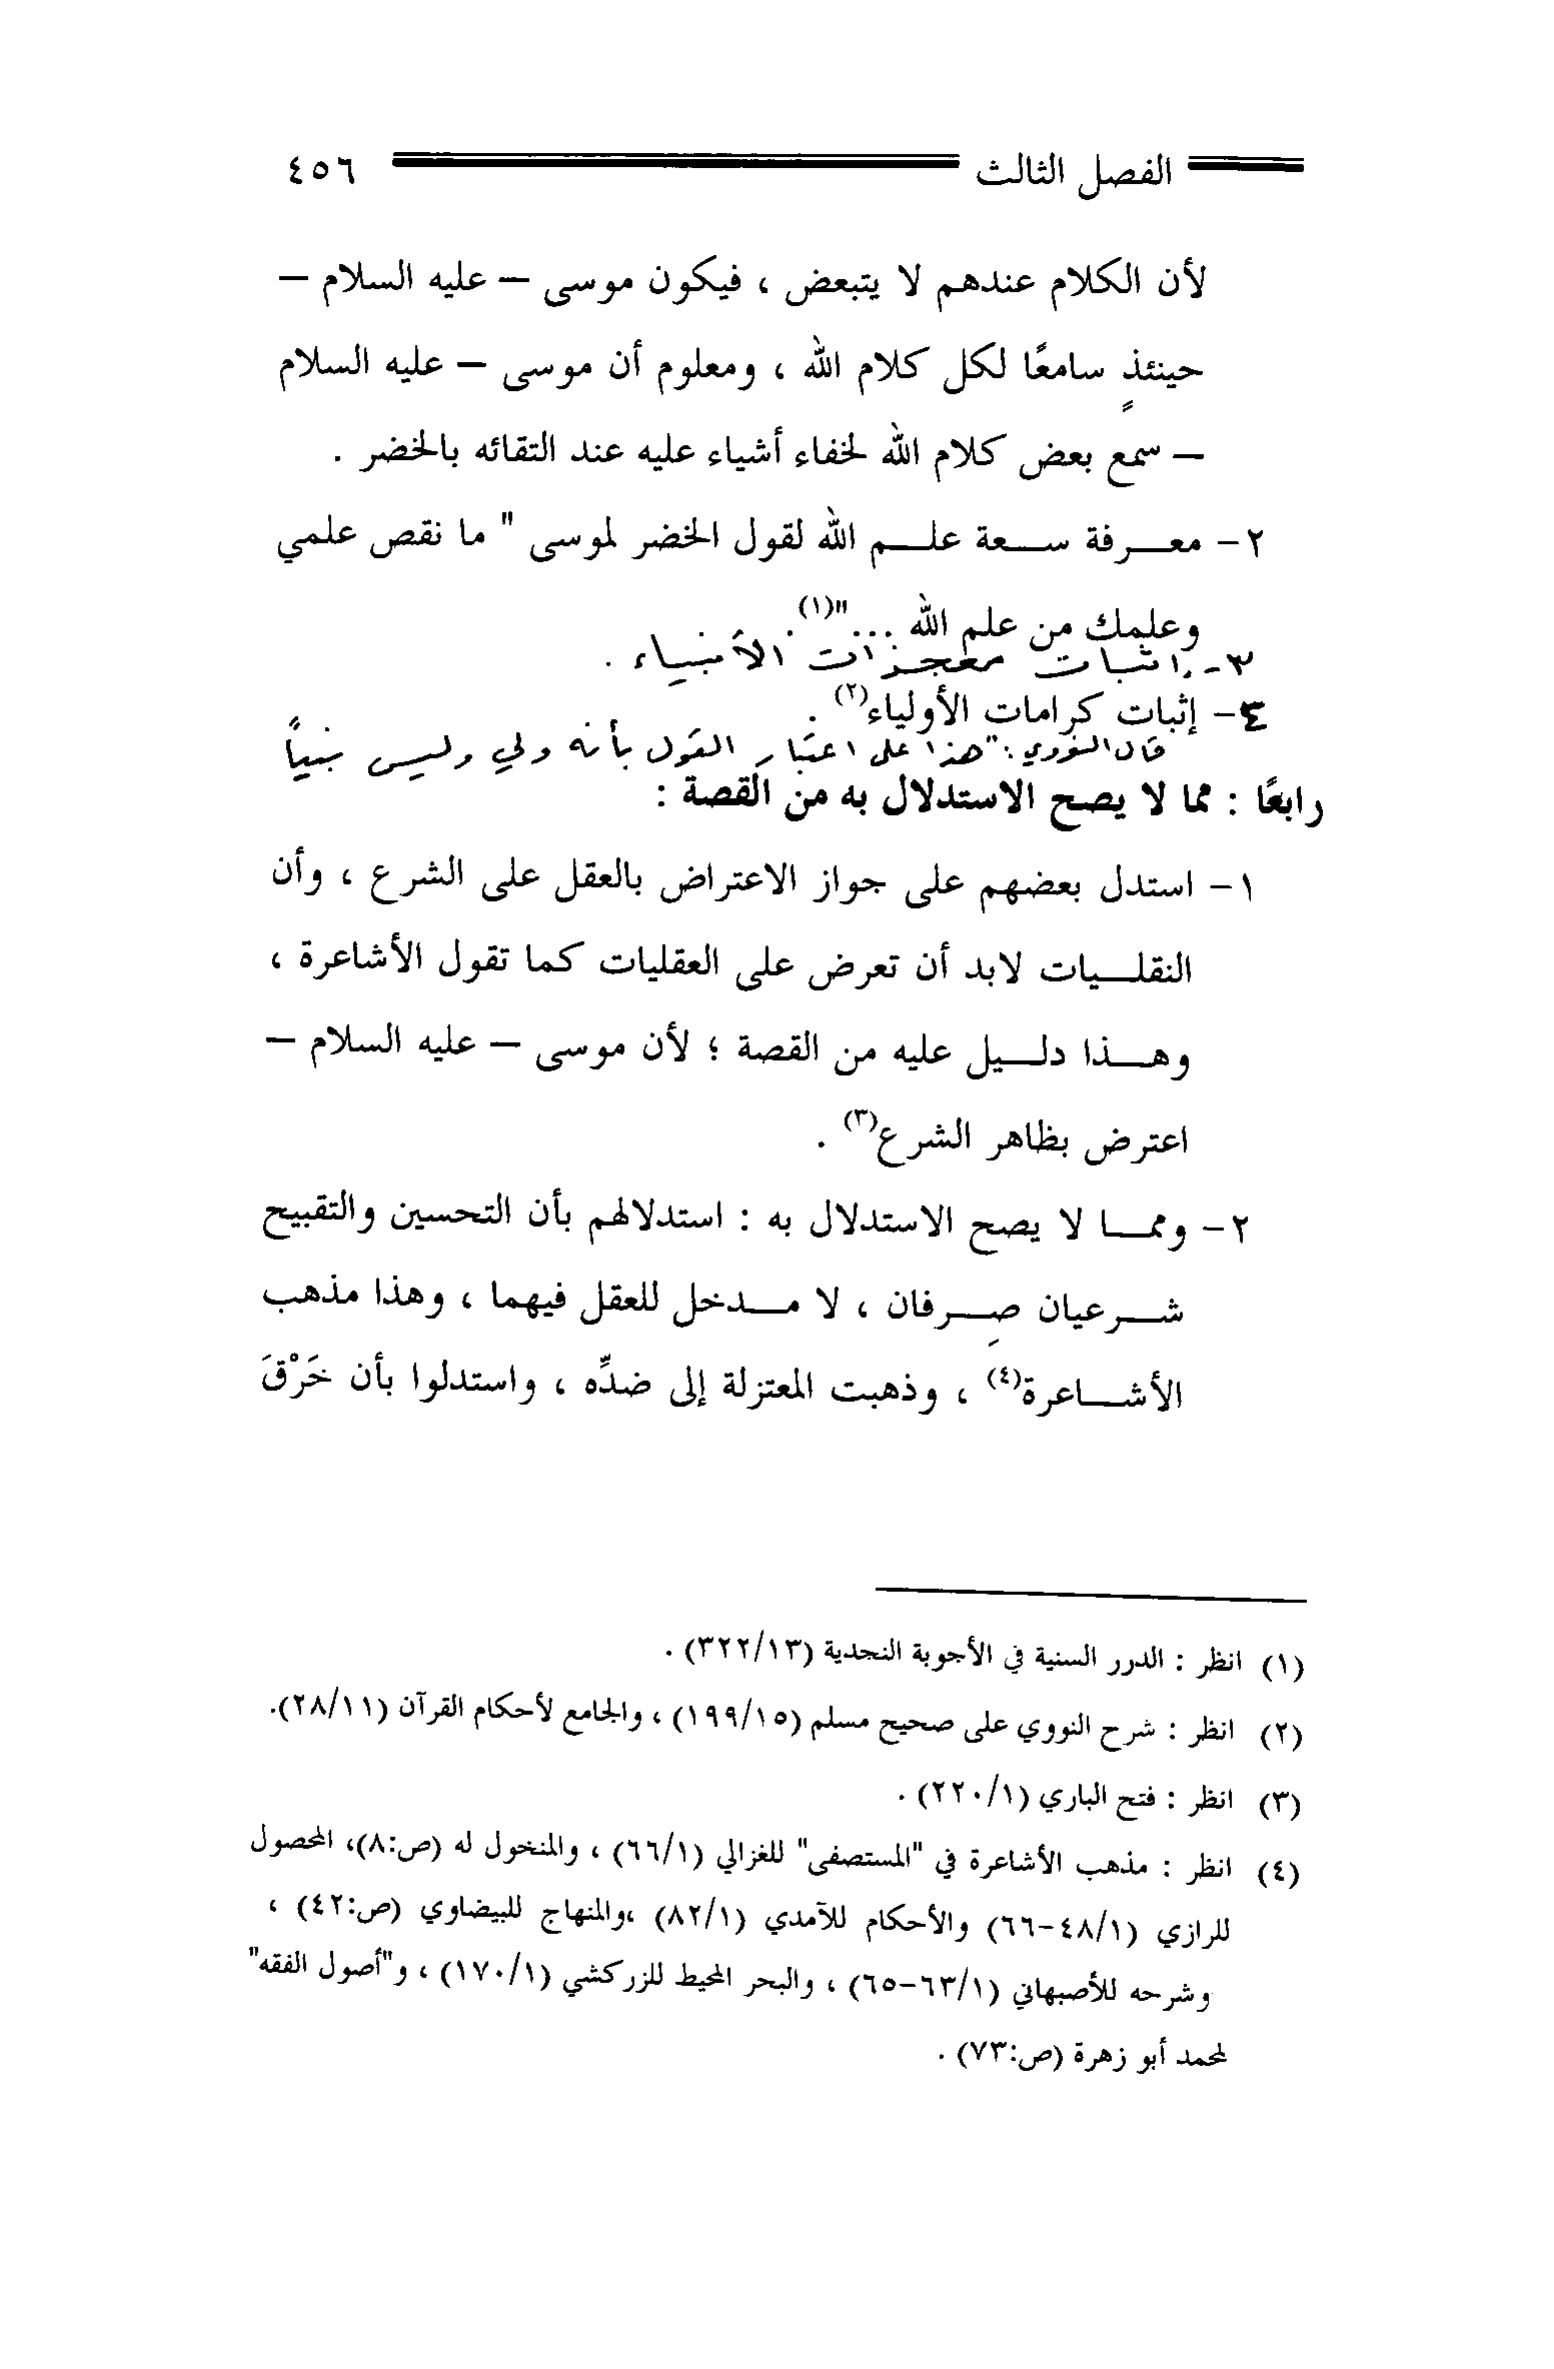 الفصل الثالث ٤٥٦
لأن الكلام عندهم لا يتبعض ، فيكون موسى – عليه السلام –
حينئذٍ سامعًا لكل كلام الله ، ومعلوم أن موسى – عليه السلام
– سمع بعض كلام الله لخفاء أشياء عليه عند التقائه بالخضر .
٢- معرفة سعة علم الله لقول الخضر لموسى " ما نقص علمي
وعلمك من علم الله ..."(١).
٣- إثبات معجزات الأنبياء .
٤- إثبات كرامات الأولياء(٢) .
قال النووي : "هذا على اعتبار القول بأنه ولي وليس نبياً
رابعًا : مما لا يصح الاستدلال به من القصة :
١- استدل بعضهم على جواز الاعتراض بالعقل على الشرع ، وأن
النقليات لابد أن تعرض على العقليات كما تقول الأشاعرة ،
وهذا دليل عليه من القصة ؛ لأن موسى – عليه السلام –
اعترض بظاهر الشرع(٣) .
٢- ومما لا يصح الاستدلال به : استدلالهم بأن التحسين والتقبيح
شرعيان صِرفان ، لا مدخل للعقل فيهما ، وهذا مذهب
الأشاعرة(٤) ، وذهبت المعتزلة إلى ضدِّه ، واستدلوا بأن خَرْقَ
(١) انظر : الدرر السنية في الأجوبة النجدية (٣٢٢/١٣) .
(٢) انظر : شرح النووي على صحيح مسلم (١٩٩/١٥) ، والجامع لأحكام القرآن (٢٨/١١).
(٣) انظر : فتح الباري (٢٢٠/١) .
(٤) انظر : مذهب الأشاعرة في "المستصفى" للغزالي (٦٦/١) ، والمنخول له (ص:٨)، المحصول
للرازي (٤٨/١-٦٦) والأحكام للآمدي (٨٢/١) ،والمنهاج للبيضاوي (ص:٤٢) ،
وشرحه للأصبهاني (٦٣/١-٦٥) ، والبحر المحيط للزركشي (١٧٠/١) ، و"أصول الفقه"
لمحمد أبو زهرة (ص:٧٣) .